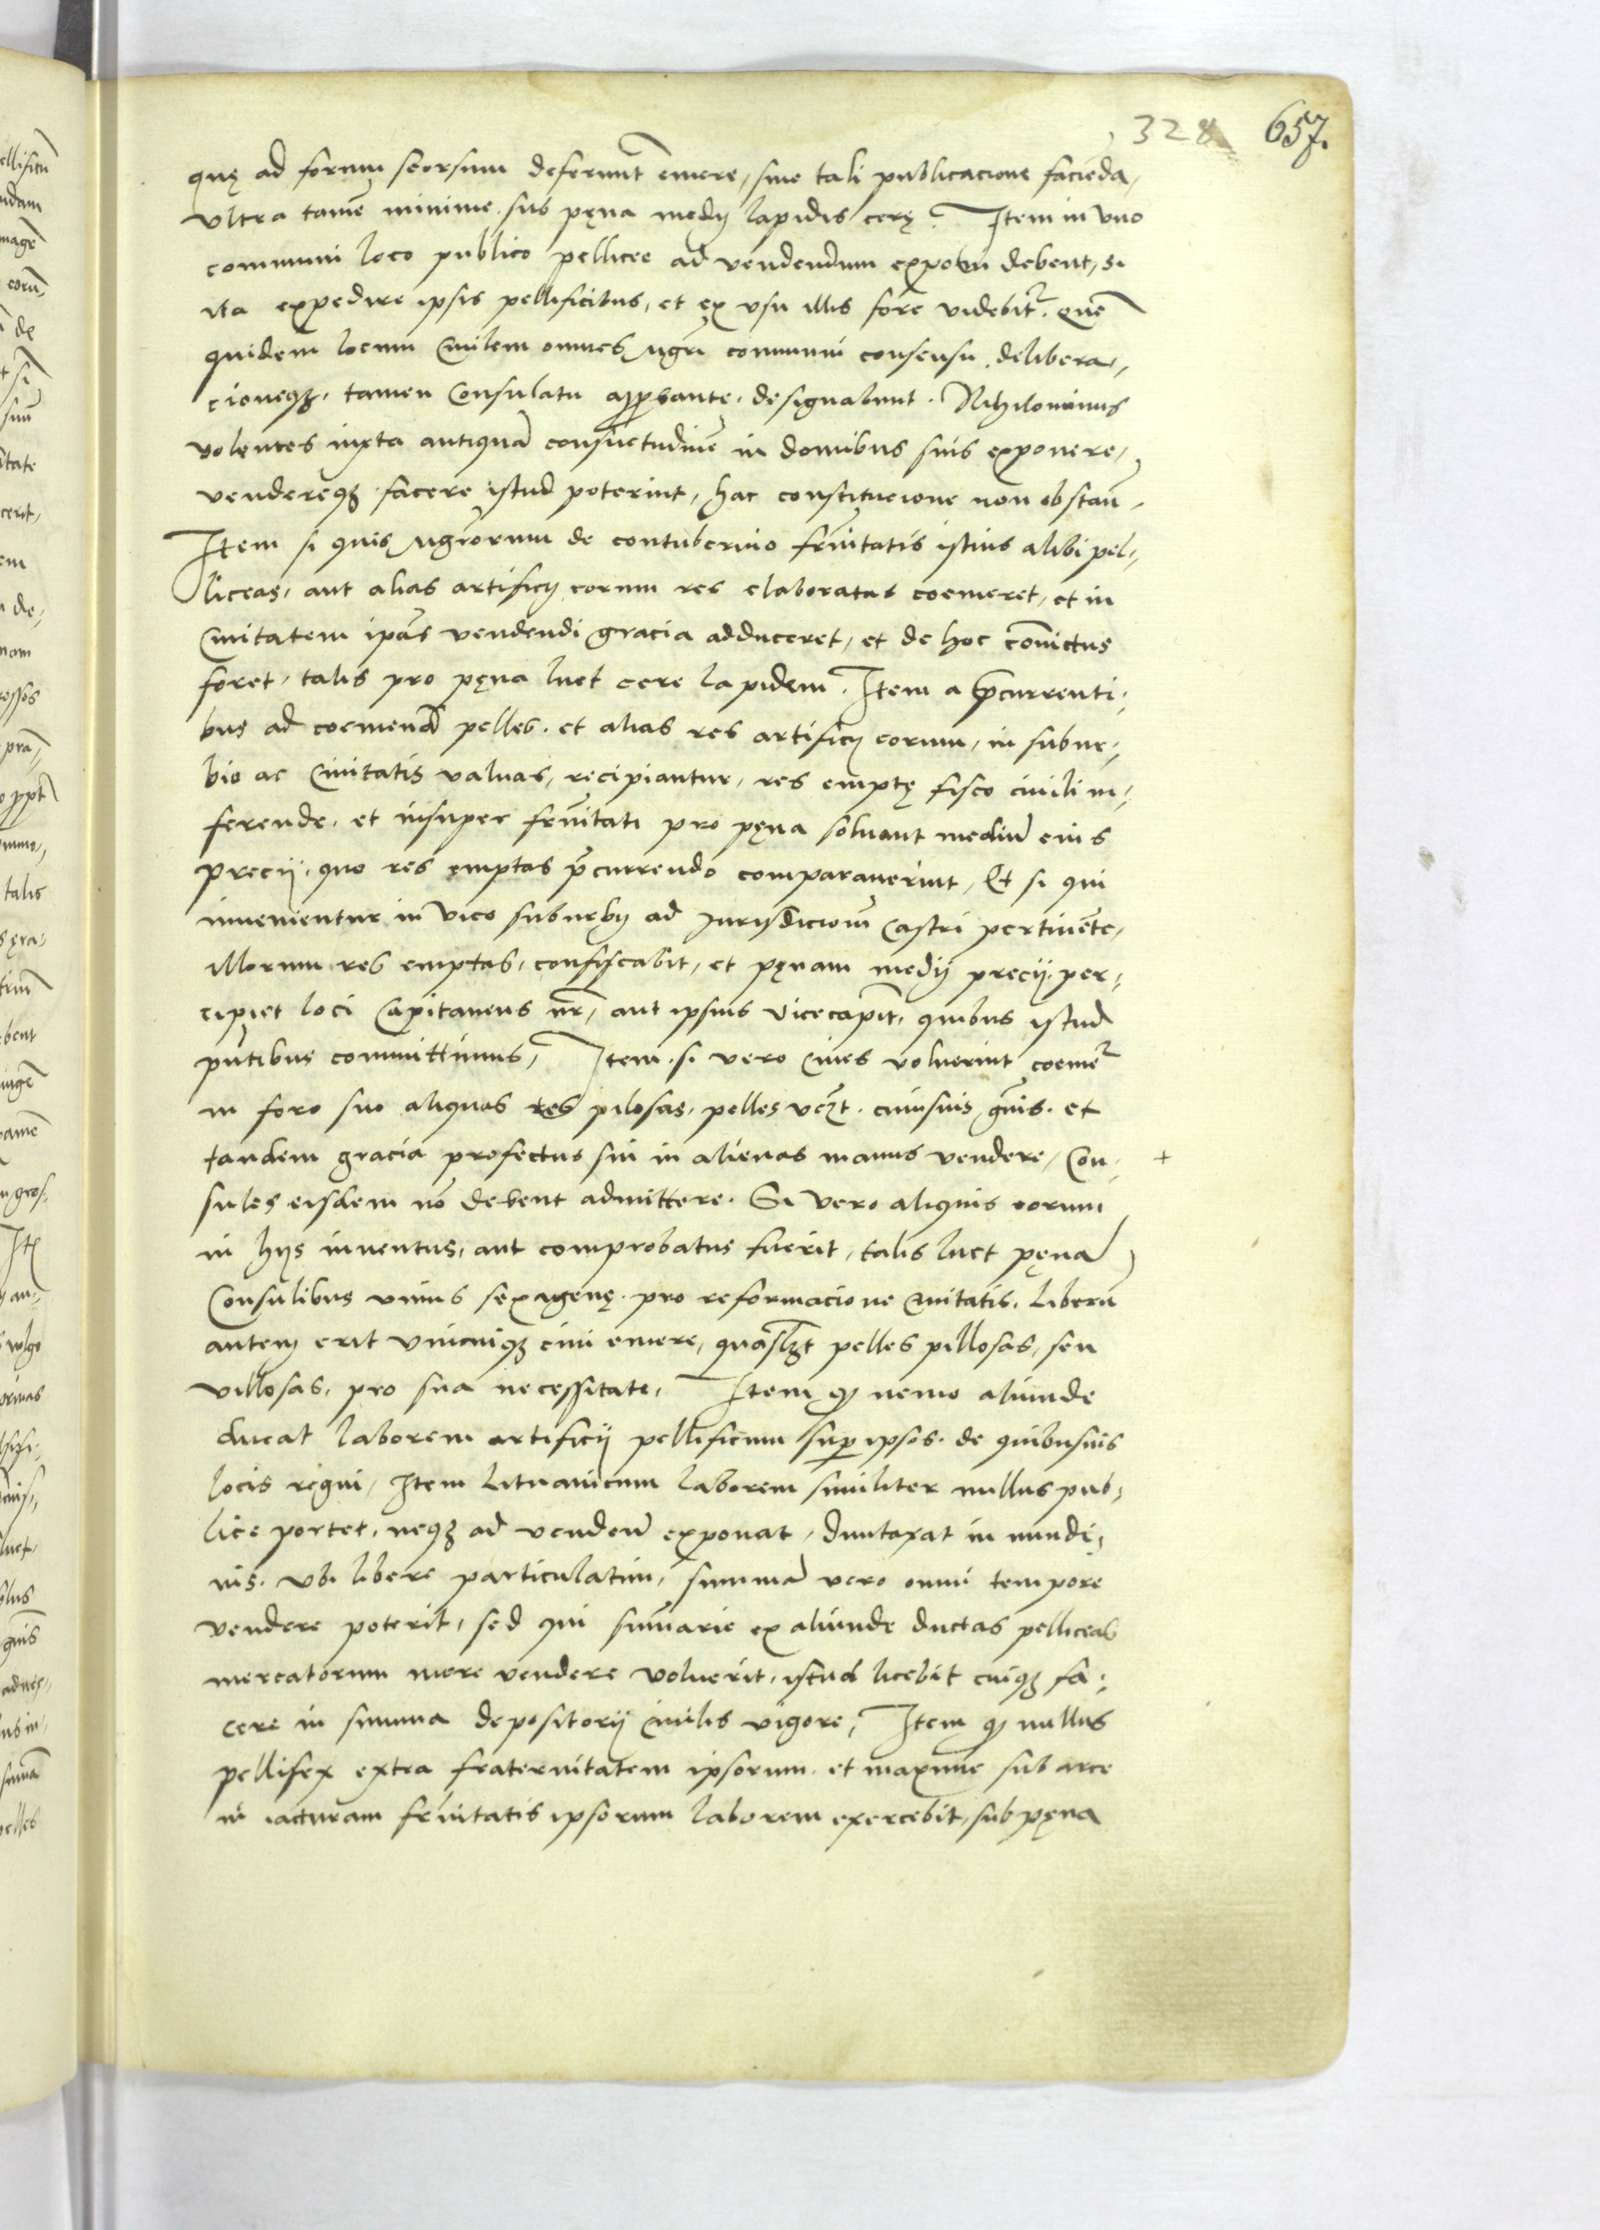 328 657.
quę ad forum seorsum deferunt emere, sine tali publicacione facieda,
vltra tamē minime. sub pęna medij lapidis cerę. Item in vno
communi loco publico pellicee ad vendendum exponi debent, si
ita expedire ipsis pellificibus, et ex vsu illis fore videbitr. quē
quidem locum Ciuilem omnes mgri communi consensu, delibera,
cioneqȝ, tamen Consulatu approbante, designabunt. Nihilominus
volentes iuxta antiquā consuetudinē in domibus suis exponere,
vendereqȝ facere istud poterint, hac constitucione non obstan̄.
Item si quis mgrorum de contubernio frnitatis istius alibi pel,
liceas, aut alias artificij eorum res elaboratas coemeret, et in
Ciuitatem ipām vendendi gracia adduceret, et de hoc conuictus
foret, talis pro pęna luet cere lapidem. Item a p̄currenti,
bus ad coemend pelles. et alias res artificij eorum, in subur,
bio ac Ciuitatis valuas, recipiantur, res emptę fisco ciuili in,
ferende, et insuper frnitati pro pęna soluant mediū eius
precij, quo res emptas p̄currendo comparauerint, Et si qui
inuenientur in vico suburbij ad iurisdicionē Castri pertinēte,
illorum res emptas, confiscabit, et pęnam medij precij. per,
cipiet loci Capitaneus nr̄, aut ipsius vicecapit, quibus istud
pn̄tibus committimus, Item. si vero Ciues voluerint coemer
in foro suo aliquas res pilosas, pelles vczt. cuiusuis gn̄is. et
tandem gracia profectus sui in alienas manus vendere, Con, +
sules eisdem nō debent admittere. Si vero aliquis eorum
in hijs inuentus, aut comprobatus fuerit, talis luet pęnā
Consulibus vnius sexagenę pro reformacione Ciuitatis. Liberū
autem erit vnicuiqȝ ciui emere, quaslȝt pelles pillosas, seu
villosas, pro sua necessitate, Item qȝ nemo aliunde
ducat laborem artificij pellificum super ipsos. de quibusuis
locis regni, Item Lituanicum laborem similiter nullus pub,
lice portet, neqȝ ad vendend exponat, duntaxat in nundi,
nis. vbi libere particulatim, summā vero omni tempore
vendere poterit, sed qui sum̄arie ex aliunde ductas pelliceas
mercatorum more vendere voluerit, istud licebit cuiqȝ fa,
cere in summa depositorij Ciuilis vigore, Item qȝ nullus
pellifex extra fraternitatem ipsorum. et maxime sub arce
in iacturam frnitatis ipsorum laborem exercebit, sub pęna